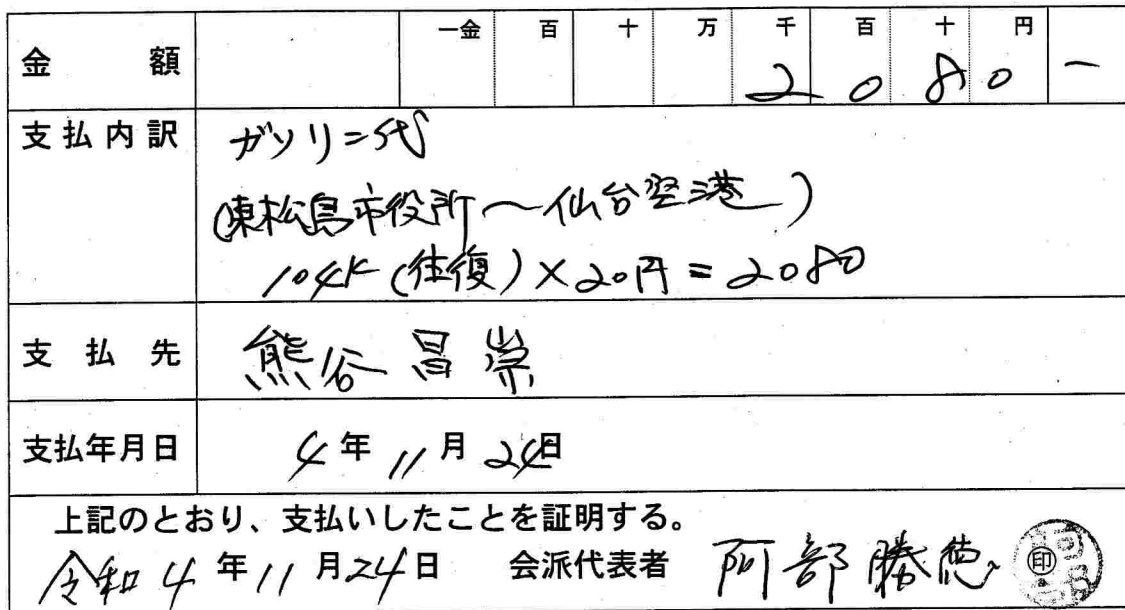 金額 一金 百 十 万 千 百 十 円
2 0 8 0 ー
支払内訳 ガソリン代
(東松島市役所〜仙台空港)
104K(往復)×20円=2080
支払先 熊谷 昌崇
支払年月日 4年11月24日
上記のとおり、支払いしたことを証明する。
令和4年11月24日 会派代表者 阿部勝徳 ㊞